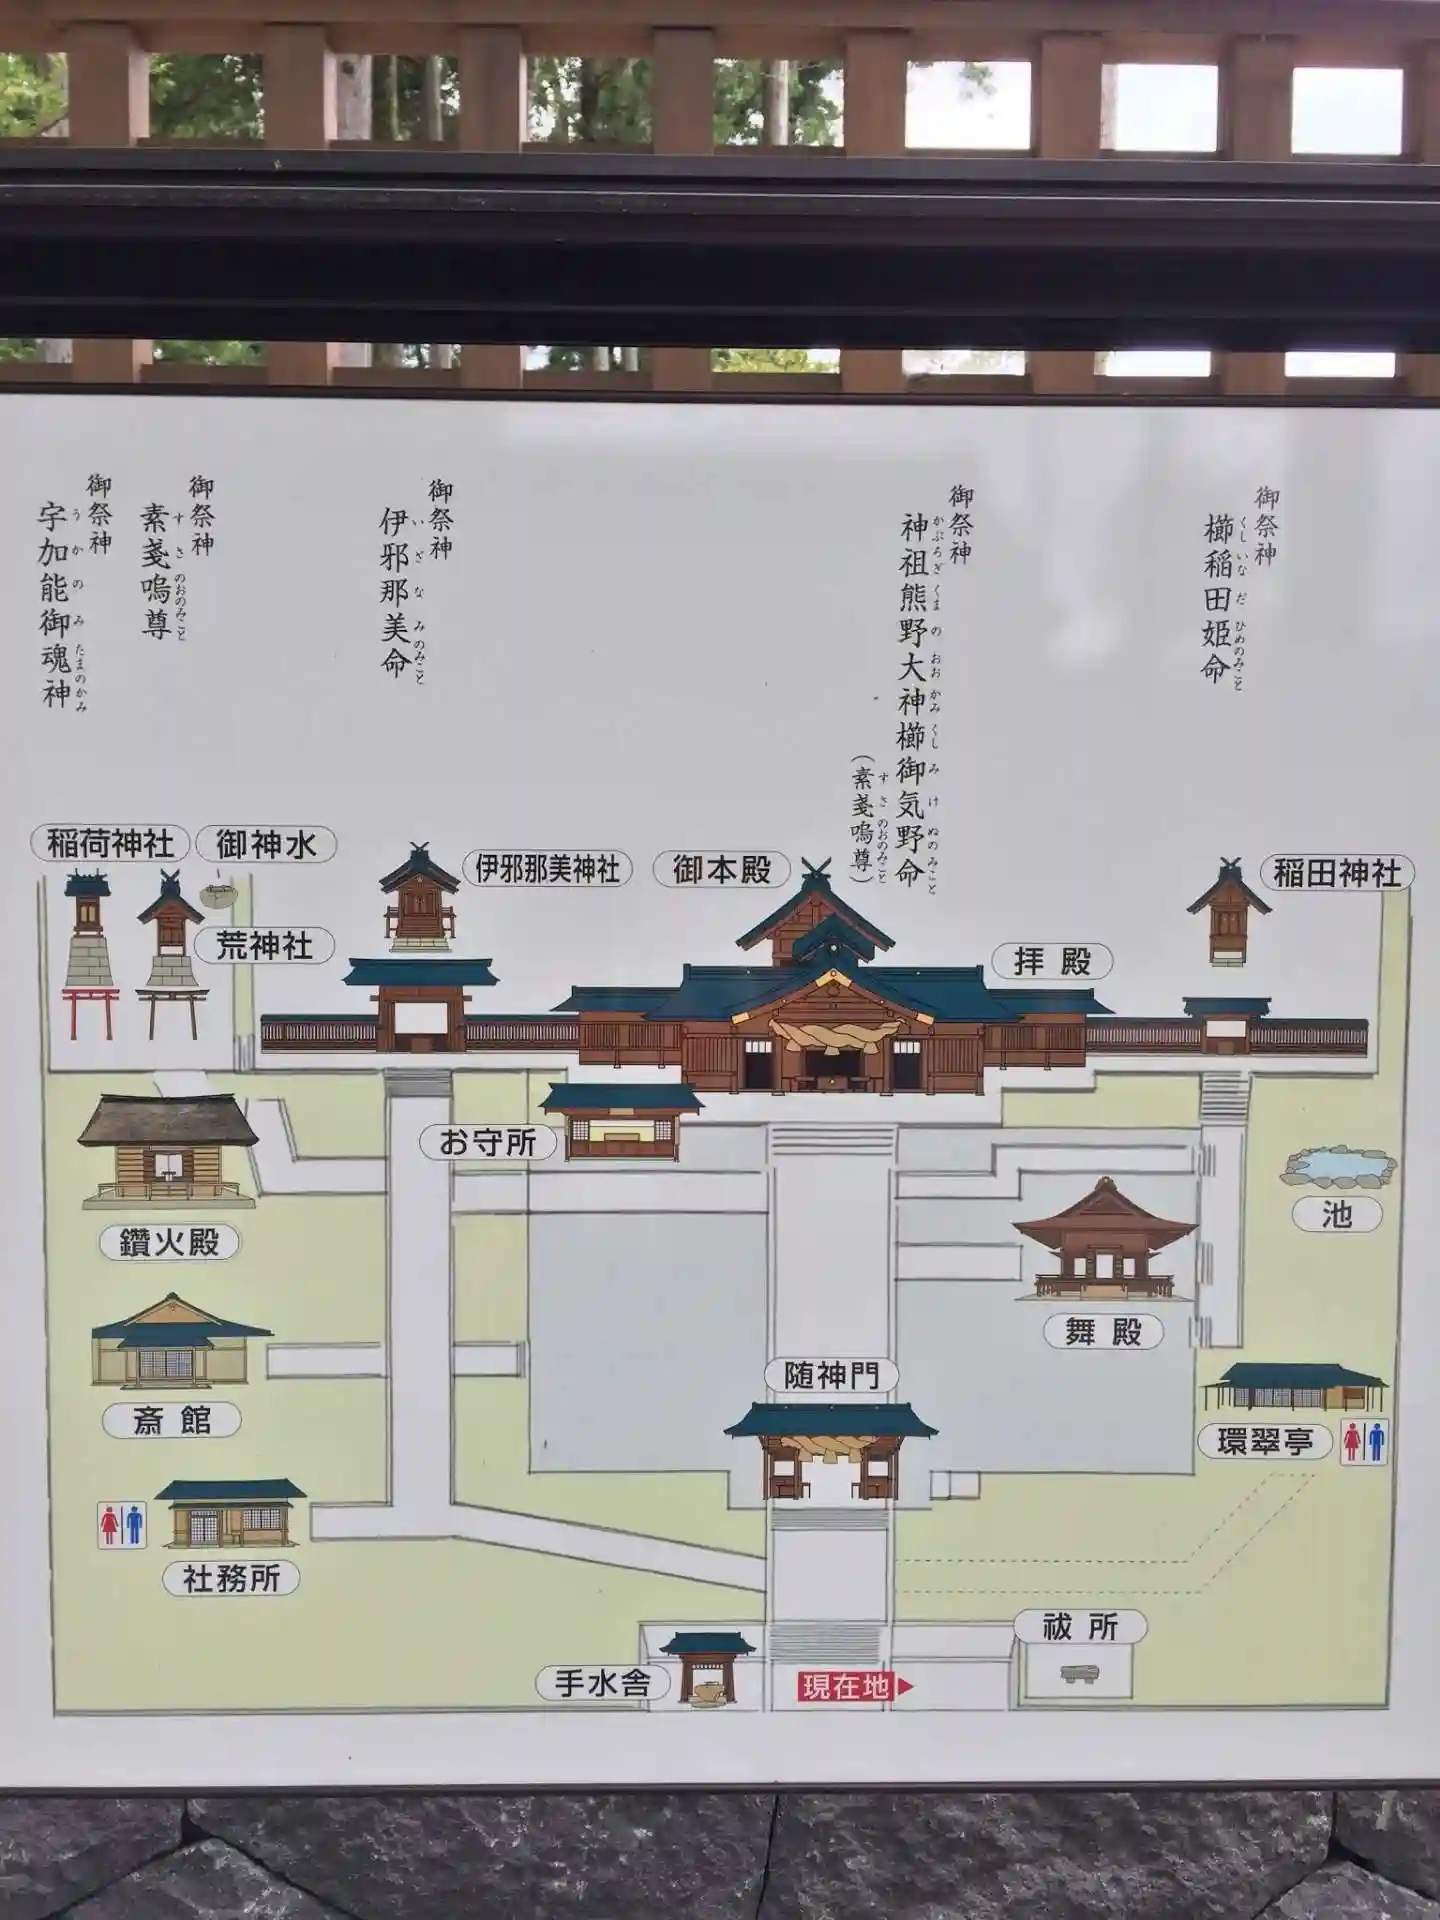 御祭神
櫛稲田姫命
くしいなだひめのみこと
御祭神
神祖熊野大神櫛御気野命
かぶろぎくまのおおかみくしみけぬのみこと
(素戔嗚尊)
すさのおのみこと
御祭神
伊邪那美命
いざなみのみこと
御祭神
素戔嗚尊
すさのおのみこと
御祭神
宇加能御魂神
うかのみたまのかみ
稲荷神社
御神水
伊邪那美神社
御本殿
稲田神社
荒神社
拝殿
お守所
池
鑽火殿
舞殿
随神門
斎館
環翠亭
社務所
祓所
手水舎
現在地